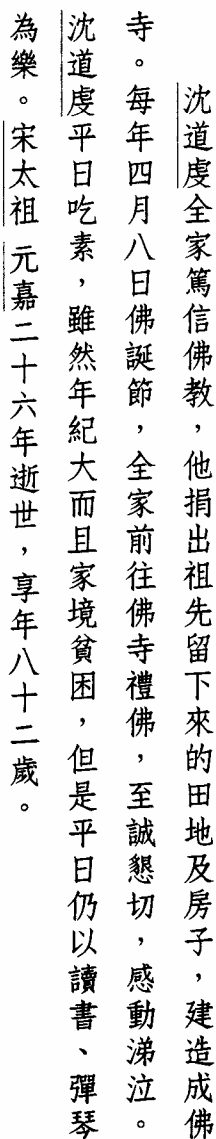 沈道虔全家篤信佛教，他捐出祖先留下來的田地及房子，建造成佛
寺。每年四月八日佛誕節，全家前往佛寺禮佛，至誠懇切，感動涕泣。
沈道虔平日吃素，雖然年紀大而且家境貧困，但是平日仍以讀書、彈琴
為樂。宋太祖元嘉二十六年逝世，享年八十二歲。